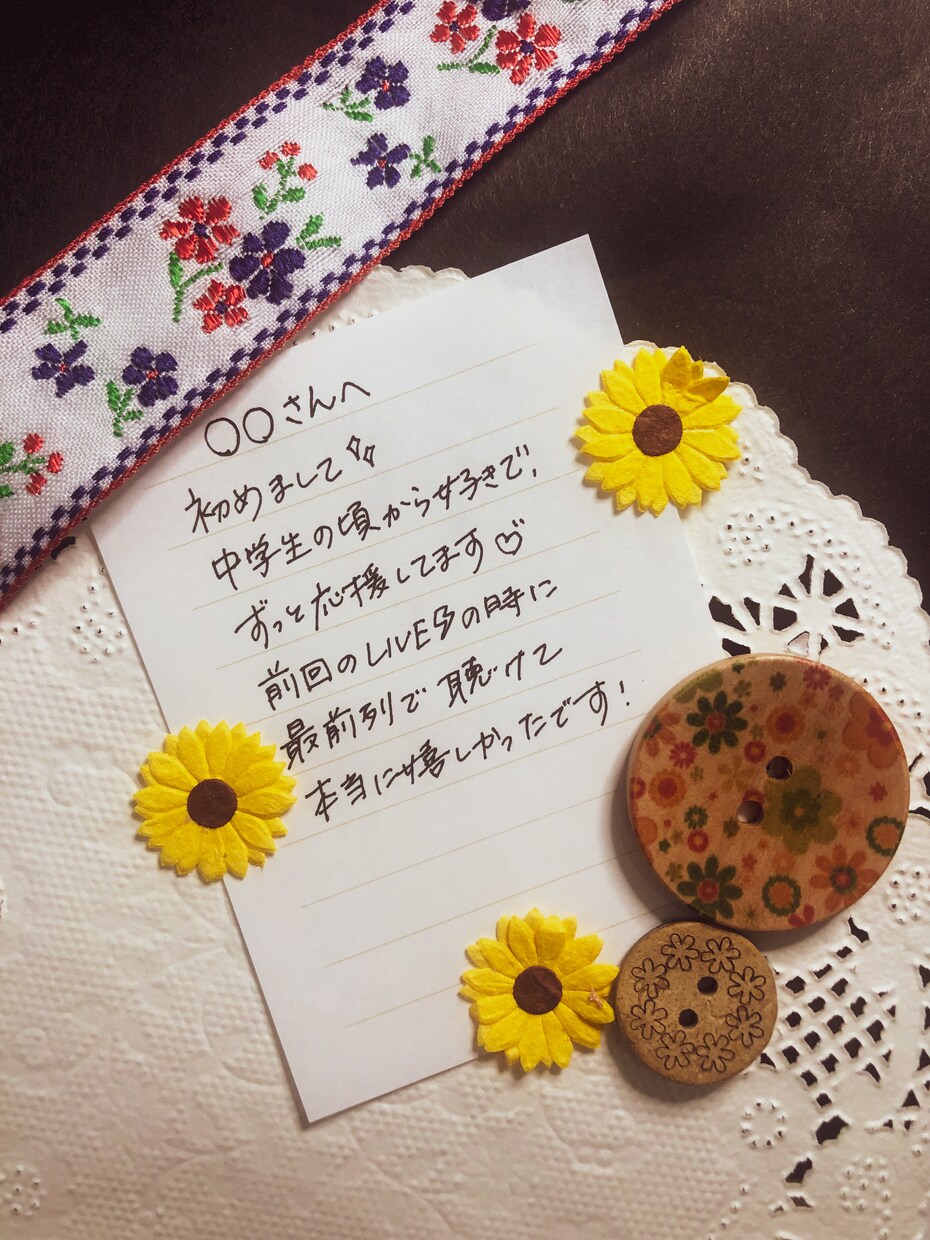 ○○さんへ
初めまして
中学生の頃から好きで、
ずっと応援してます♡
前回のLIVEの時に
最前列で聴けて
本当に嬉しかったです!